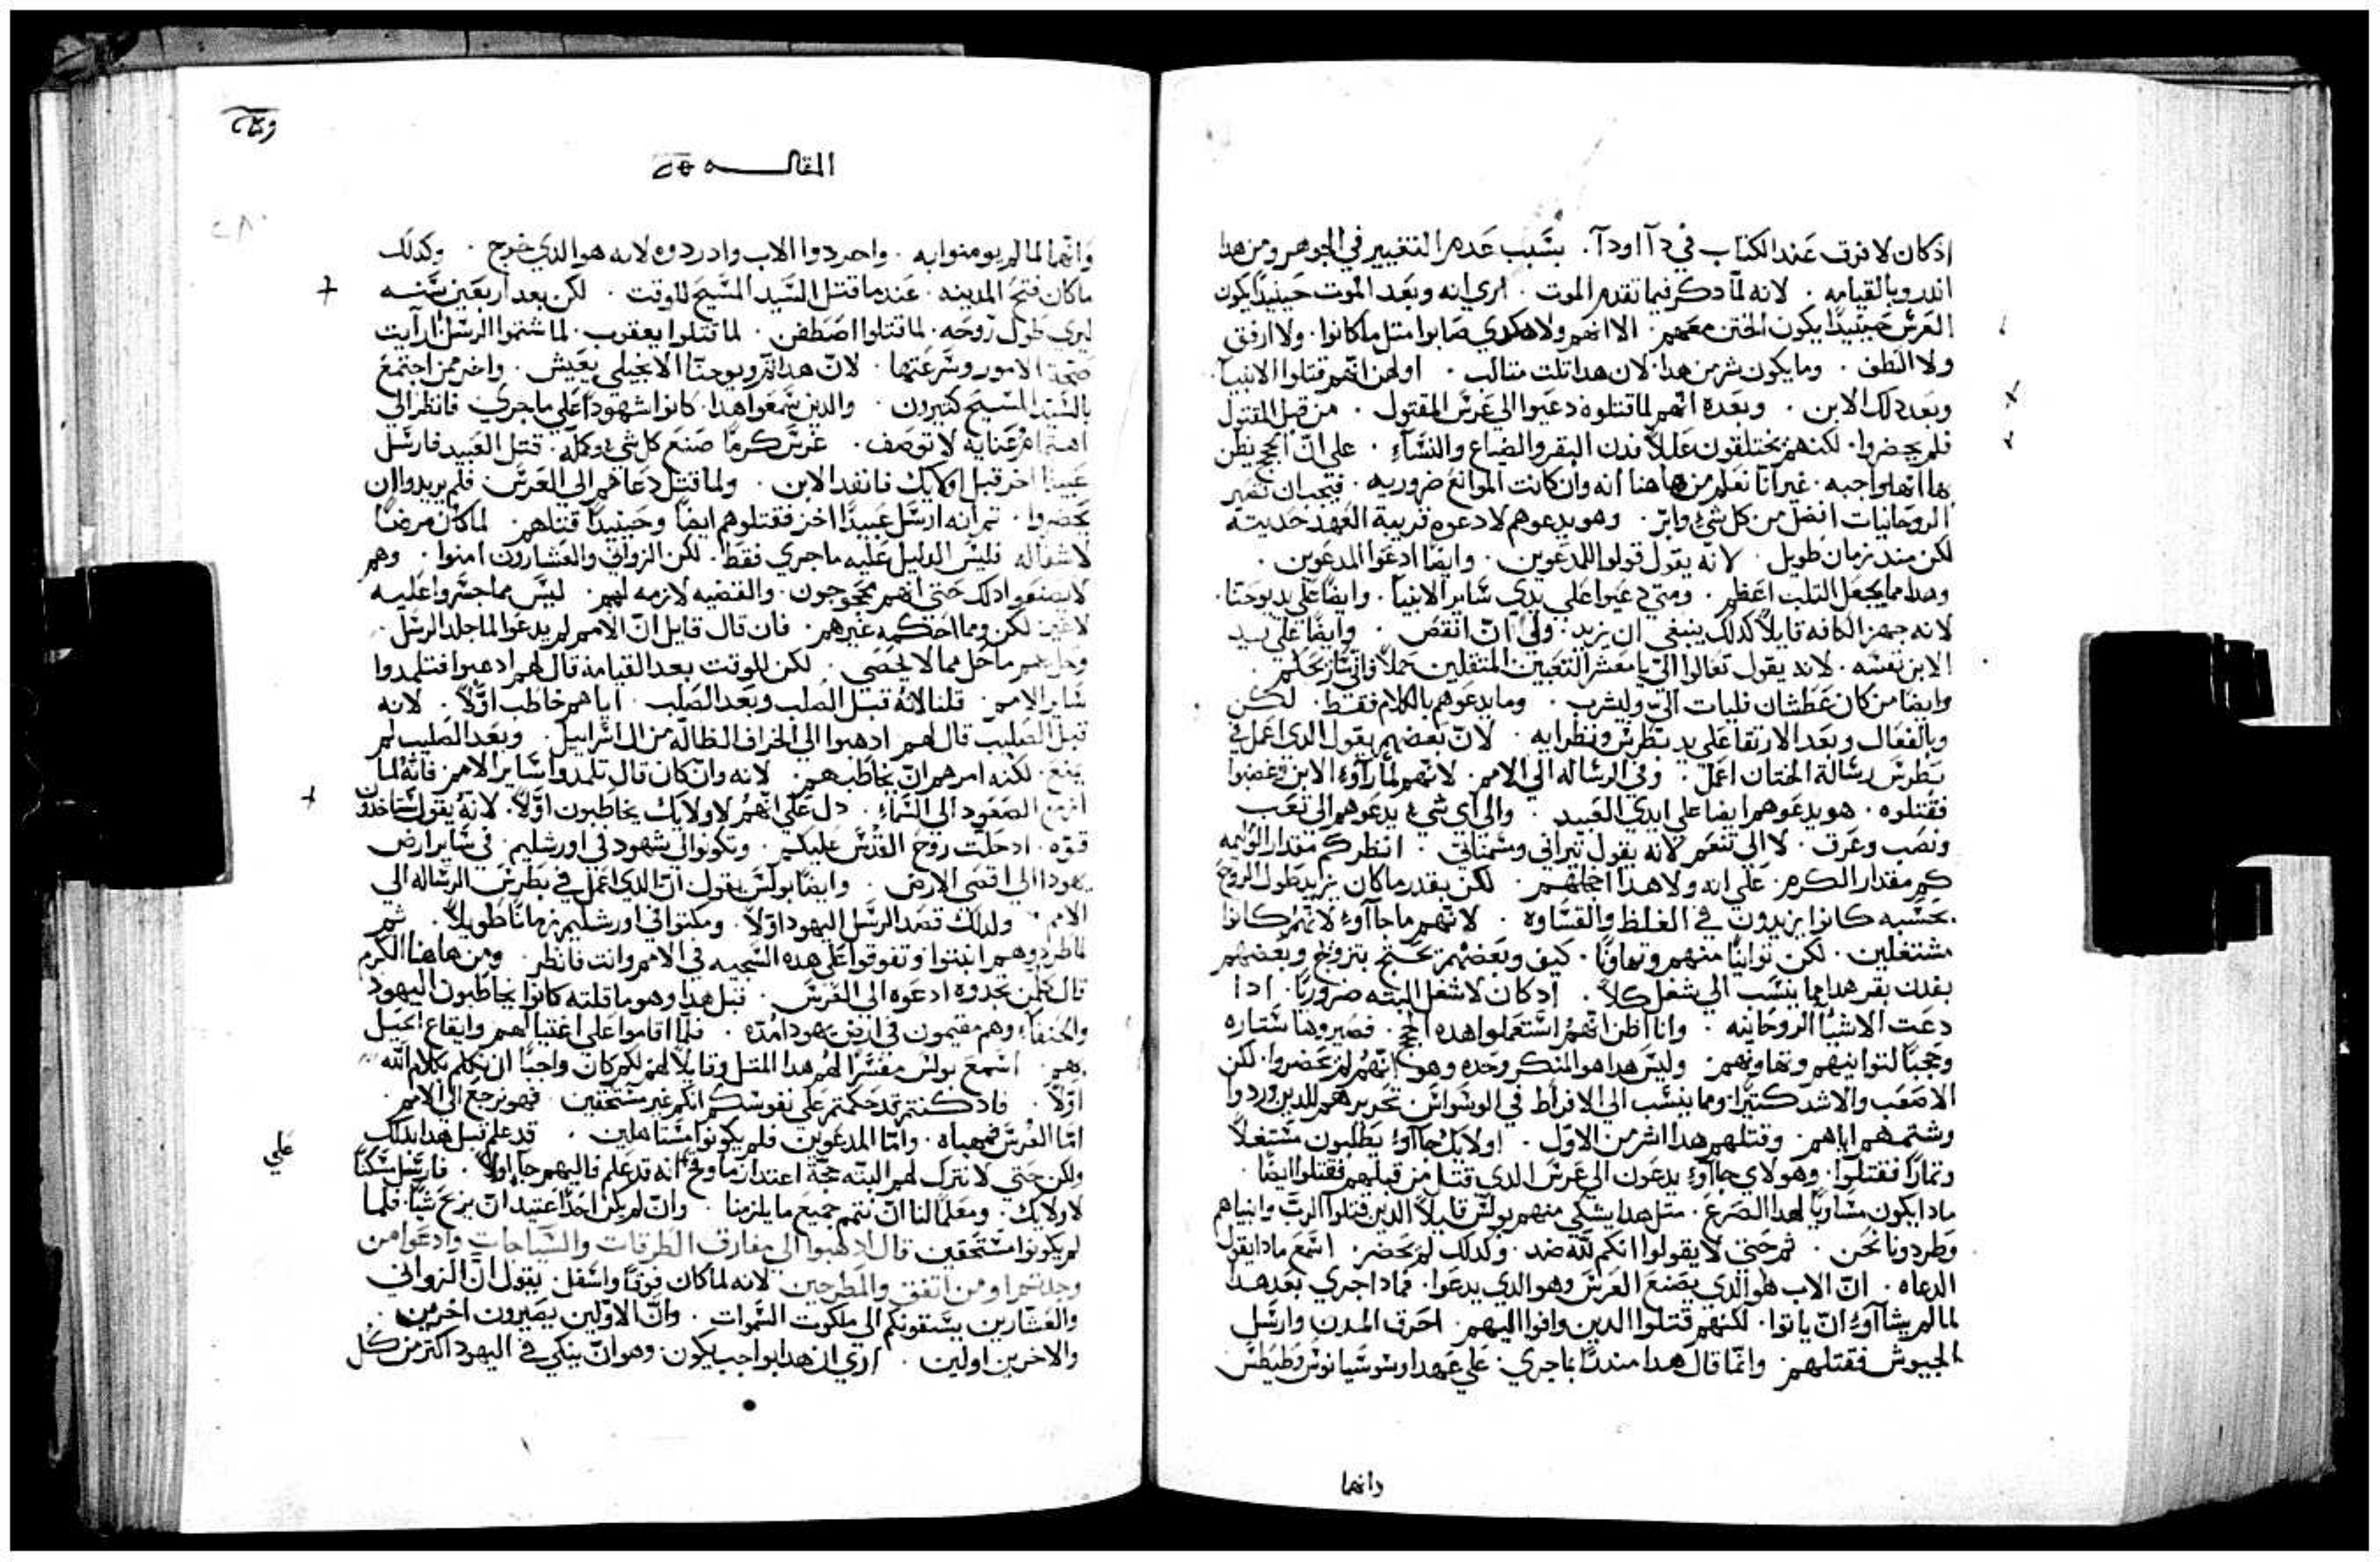 اذ كان لا فرق عند الكتاب في دآ او دآ . بسبب عدم التغيير في الجوهر ومن هدا
اندر وبالقيامه . لانه لمّا دكر فيما تقدم الموت . اري انه وبعد الموت حينيدًا يكون
العرس حينيدًا يكون الختن معهم . الا انهم ولا هكدي صابوا مثل ما كانوا . ولا ارفق
ولا الطف . وما يكون شر من هدا . لان هدا تلت متالب . اولهن انهم قتلوا الانبيآ .
وبعد دلك الابن . وبعده انهم لما قتلوه دعيوا الي عرس المقتول . من قبل المقتول
فلم يحضروا . لكنهم يختلقون عللاً فدن البقر والضياع والنسآء . علي انّ الحجج يظن
بها انها واجبه . غير انّا نعلم من هاهنا انه وان كانت الموانع ضروريه . فيجب ان تصير
الروحانيات افضل من كل شيء وابرّ . وهو يدعوهم لا دعوه قريبة العهد حديثه
لكن مند زمان طويل . لانه يقول قولوا للمدعوين . وايضًا ادعوا المدعوين .
وهدا مما يجعل التلب اعظم . ومتي دعيوا علي يدي ساير الانبيا . وايضًا علي يد يوحنّا .
لانه جهز الكافه قايلاً كدلك ينبغي ان يزيد . ولي انّ انقص . وايضًا علي يد
الابن نفسه . لانه يقول تعالوا اليّ يا معشر التعبين المتقلين حملاً فاني اريحكم .
وايضا من كان عطشان فليات اليّ وليشرب . وما يدعوهم بالكلام فقط . لكن
وبالفعال وبعد الارتقا علي يد بطرس ونظرايه . لانّ بعضهم يقول الدي اعمل في
بطرس رسالة الختان اعمل . وفي الرساله الي الامم . لانهم لما رآوا الابن غضبوا
فقتلوه . هو يدعوهم ايضا علي ايدي العبيد . والي اي شيء يدعوهم الي تعب
ونصب وعرق . لا الي تنعم لانه يقول تيراني ومسمناتي . انظر كم مقدار الوليمه
كم مقدار الكرم . علي انه ولا هدا اخجلهم . لكن بقدر ما كان يزيد طول الروح
بحسبه كانوا يزيدون في الغلظ والقساوه . لانهم ما جآاوا لانهم كانوا
مشتغلين . لكن توانيًا منهم وتهاونًا . كيف وبعضهم تحتج بتزوج وبعضهم
بفدن بقر هدا مما ينسب الي شغل كلاّ . اد كان لا شغل البته ضروريًا . ادا
دعت الاشيآ الروحانيه . وانا اظن انهم استعملوا هده الحجج . فصيروها ستاره
وحجبًا لتوانيهم وتهاونهم . وليس هدا هو المنكر وحده وهو انهم لم يحضروا . لكن
الاصعب والاشد كتيرًا . ومما ينسب الي الافراط في الوسواس . تحريرهم للدين وردوا
وشتمهم اياهم . وقتلهم هدا اشر من الاول . اوليك جآاوا يطلبون مستغلاً
وتمارًا فقتلوا . وهولاي جآاوا يدعون الي عرس الدي قتل من قبلهم فقتلوا ايضًا .
مادا يكون مساويًا لهدا الصرع . مثل هدا يشكي منهم بولس قايلاً الدين قتلوا الربّ وانبياهم
وطردونا نحن . ثم حتي لا يقولوا انكم للّه ضد . وكدلك لم نحضر . اسمع مادا يقول
الدعاه . انّ الاب هو الدي يصنع العرس وهو الدي يدعوا . فمادا جري بعد هدا
لما لم يشآاوا انّ ياتوا . لكنهم قتلوا الدين وافوا اليهم . احرق المدن وارسل
الجيوش فقتلهم . وانما قال هدا مندرًا بما جري . علي عهد اوسوسيانوس وطيطس
وانما
المقاله
وانّما لما لم يومنوا به . واحردوا الاب وادردوه لانه هو الدي خرج . وكدلك
ما كان فتح المدينه . عندما قتل السّيد المسيح للوقت . لكن بعد اربعين سنه
ليري طول روحه . لما قتلوا اصطفن . لما قتلوا يعقوب . لما شتموا الرسل ارآيت
صحّة الامور وسرعتها . لانّ هدا تمّ ويوحنّا الانجيلي يعيش . واخر ممن اجتمع
بالسّيد المسيح كتيرون . والدين سمعوا هدا كانوا شهودًا علي ما جري فانظر الي
اهتمام وعنايه لا توصف . غرس كرمًا صنع كل شيء وكمله . قتل العبيد فارسل
عبيدًا اخر قبل اوليك فانفد الابن . ولما قتل دعاهم الي العرس . فلم يريدوا ان
يحضروا . تم انه ارسل عبيدًا اخر فقتلوهم ايضًا وحينيدًا قتلهم . لما كان مرضًا
لا شفا له فليس الدليل عليه ما جري فقط . لكن الزواني والعشارون امنوا . وهم
لا يصنعوا دلك حتي انهم محجوجون . والقضيه لازمه لهم . ليس مما جسروا عليه
لا غير لكن ومما احكمه غيرهم . فان قال قايل انّ الامم لم يدعوا لما جلد الرسل
وحل بهم ما حل مما لا يحصي . لكن للوقت بعد القيامه قال لهم ادهبوا فتلمدوا
ساير الامم . قلنا لانّه قبل الصلب وبعد الصلب . اياهم خاطب اوّلاً . لانه
قبل الصليب قال لهم ادهبوا الي الخراف الظالّه من ال اسراييل . وبعد الصليب لم
يمنع . لكنه امرهم انّ يخاطبهم . لانه وان كان قال تلمدوا ساير الامم فانّه لما ان
ازمع الصعود الي السمآء . دل علي انهم لاولايك يخاطبون اوّلاً . لانه يقول ستاخدون
قوّه . اد حلت روح القدس عليكم . وتكونوا لي شهود في اورشليم . في ساير ارض
يهودا الي اقصي الارض . وايضًا بولس يقول انّ الدي اعمل في بطرس الرساله الي
الامم . ولدلك قصد الرسل اليهود اوّلاً . ومكتوا في اورشليم زمانًا طويلاً . ثم
لما طردوهم انبتوا وتفوقوا علي هده السجيه في الامم وانت فانظر . ومن هاهنا الكرم
قال كلمن تجدوه ادعوه الي العرس . قبل هدا وهو ما قلته كانوا يخاطبون اليهود
والحنفآء وهم مقيمون في ارض يهودا مدّه . فلما اقاموا علي اغتيالهم وايقاع الحيل
بهم . اسمع بولس مفسرًا لهم هدا المثل وقايلاً لهم لكم كان واجبًا ان نكلم بكلام اللّه
اوّلاً . فاد كنتم قد حكمتم علي نفوسكم انكم غير مستحقين . فهو نرجع الي الامم .
امّا العرس فمهياه . وامّا المدعوين فلم يكونوا مستاهلين . قد علم قبل هدا بدلك
ولكن حتي لا نترك لهم البته حجة اعتدار ما وقح انه قد علم فاليهم جا اولاً . فارسل شكنًّا
علي
لاولايك . ومعلمًا لنا انّ نتمم جميع ما يلزمنا . وانّ لم يكن احدًا عتيد انّ يربح شيًا . فلما
لم يكونوا مستحقين قال ادهبوا الي مفارق الطرقات والسّاحات وادعوا من
وجدتموا ومن اتفق والمطرحين . لانه لما كان فوقًا واسفل . يقول انّ الزواني
والعشارين يسبقونكم الي ملكوت السموات . وانّ الاوّلين يصيرون اخرين .
والاخرين اولين . اري ان هدا بواجب يكون . وهو انّ ينكي في اليهود اكتر من كل